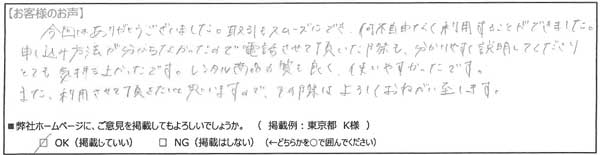 【お客様のお声】
今回はありがとうございました。取引もスムーズにでき、何不自由なく利用することができました。
申し込み方法が分からなかったので電話させて頂いた際も、分かりやすく説明してくださり
とても気持ち良かったです。レンタル商品の質も良く、使いやすかったです。
また、利用させて頂きたいと思いますので、その際はよろしくおねがい致します。
■弊社ホームページに、ご意見を掲載してもよろしいでしょうか。 （ 掲載例：東京都 K様 ）
□ OK（掲載していい） □ NG（掲載はしない） （←どちらかを○で囲んでください）